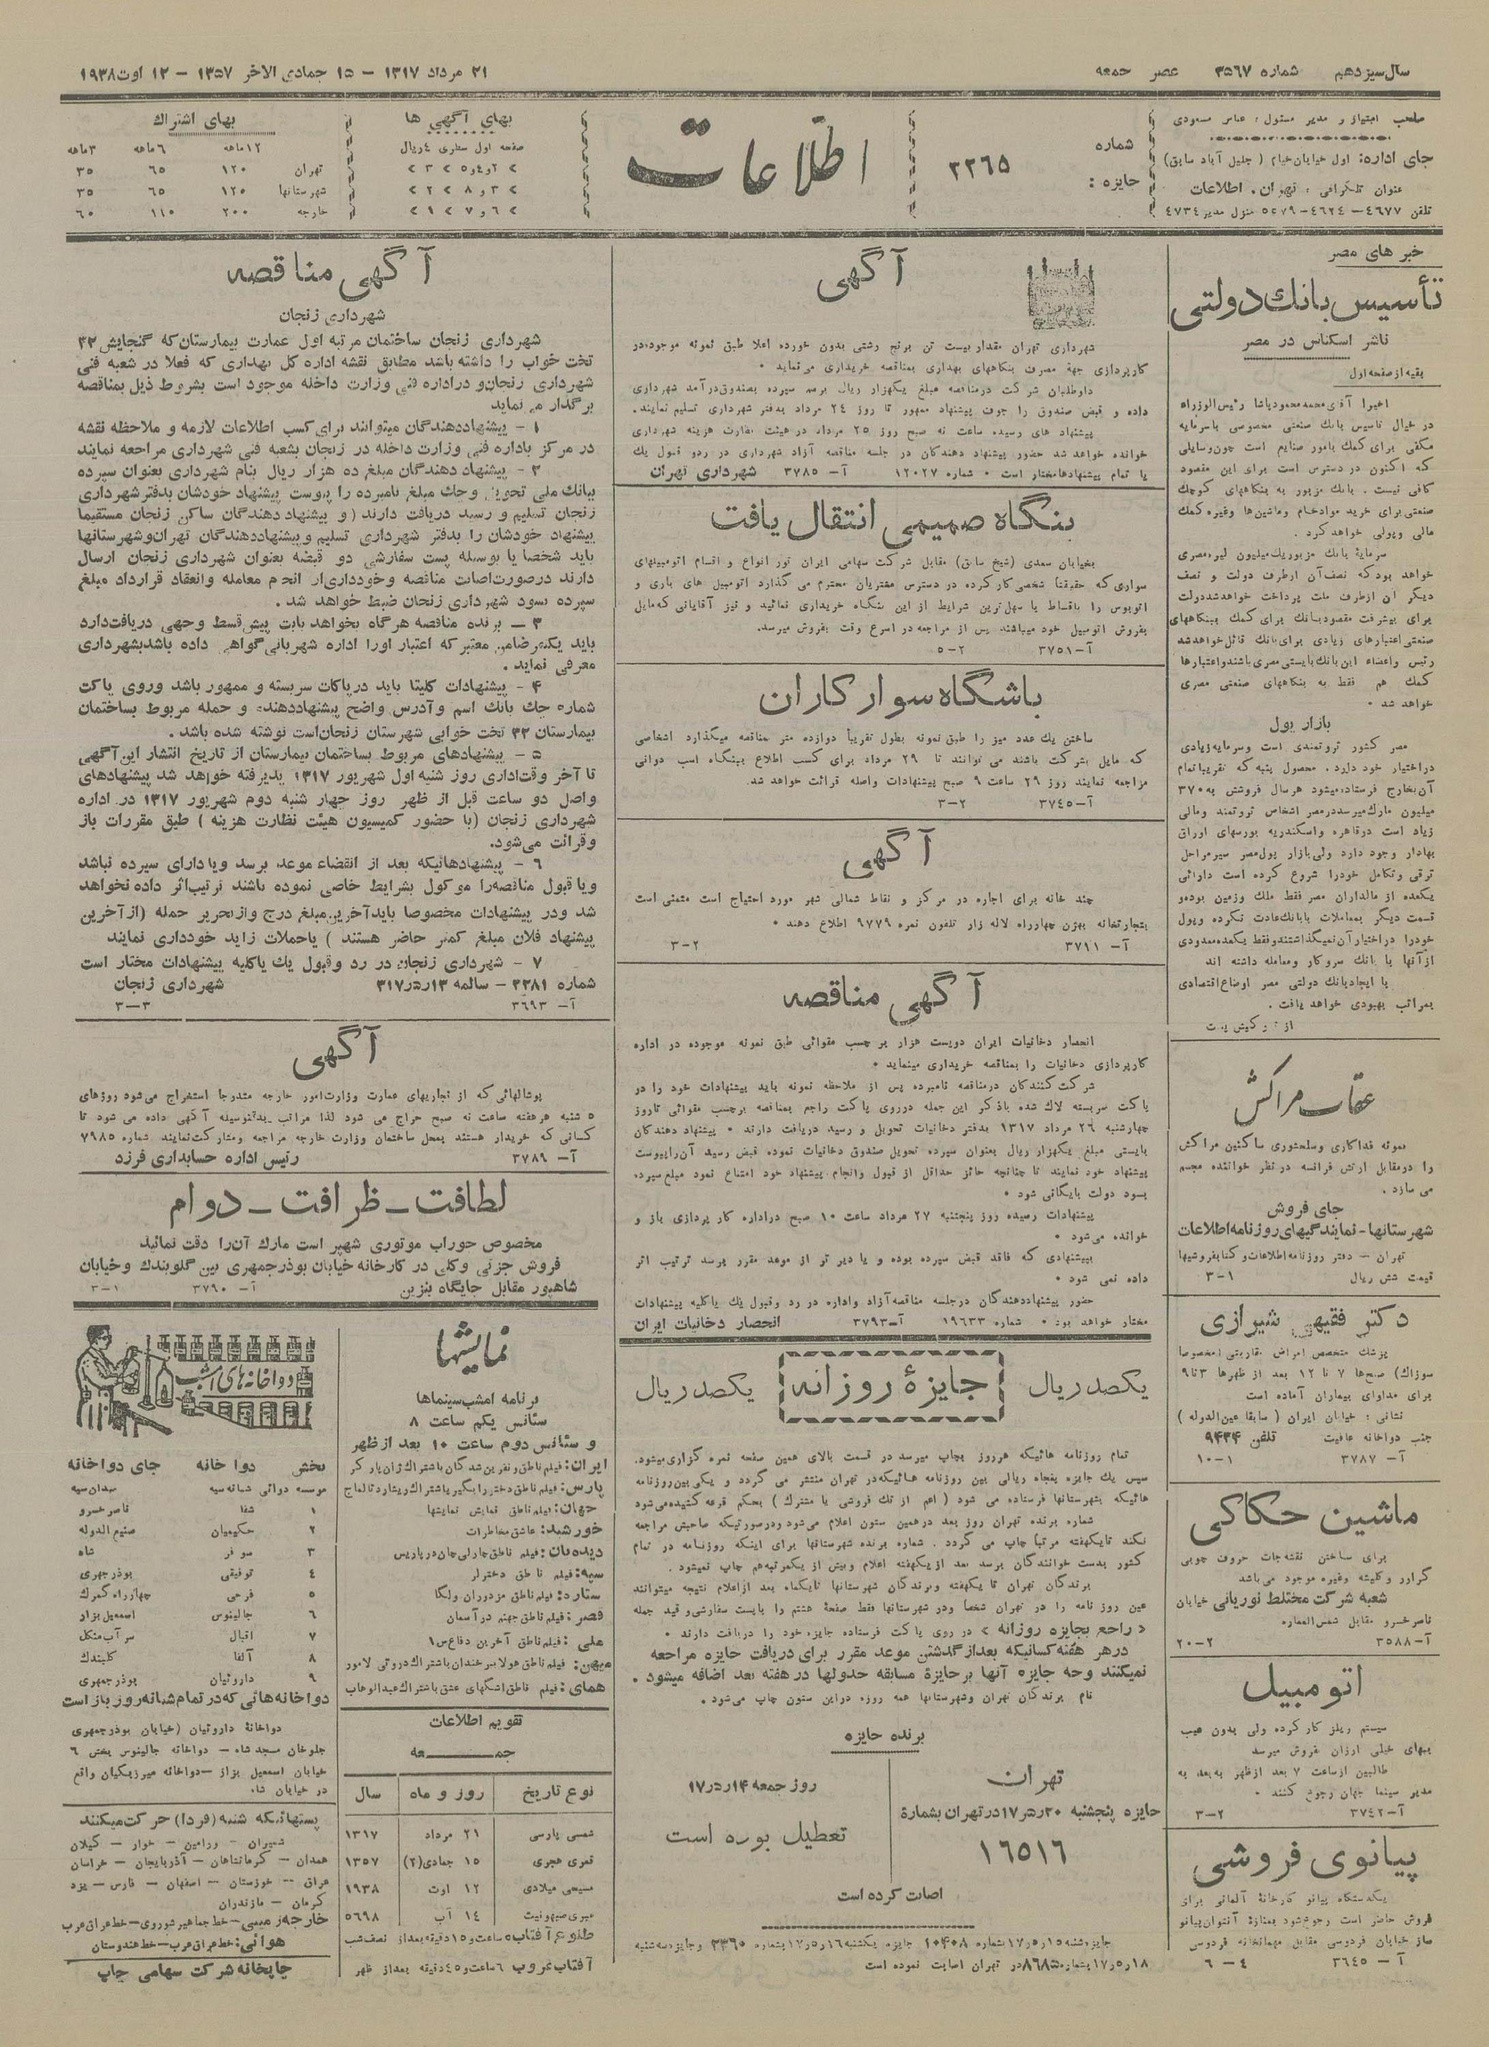 سال سیزدهم شماره ۳۵۶۷ عصر جمعه
۲۱ مرداد ۱۳۱۷ – ۱۵ جمادی الاخر ۱۳۵۷ – ۱۲ اوت ۱۹۳۸
صاحب امتیاز و مدیر مسئول : عباس مسعودی
جای اداره: اول خیابان خیام ( جلیل آباد سابق)
عنوان تلگرافی : تهران. اطلاعات
تلفن ۴۶۷۷ – ۴۶۲۴ – ۵۲۷۹ منزل مدیر ۴۷۳۴
شماره
جایزه :
۲۲۶۵
اطلاعات
بهای آگهی ها
صفحه اول سطری ۴ ریال
بهای اشتراك
۱۲ماهه ۶ماهه ۳ماهه
تهران ۱۲۰ ۶۵ ۳۵
شهرستانها ۱۲۰ ۶۵ ۳۵
خارجه ۲۰۰ ۱۱۰ ۶۰
خبر های مصر
تأسیس بانك دولتی
ناشر اسکناس در مصر
بقیه از صفحه اول
اخیرا آقای محمد محمود پاشا رئیس الوزراء
در خیال تاسیس بانك صنعتی مخصوصی با سرمایه
مکفی برای کمك بامور صنایع است چون وسایلی
که اکنون در دسترس است برای این مقصود
کافی نیست . بانك مزبور به بنگاههای کوچك
صنعتی برای خرید مواد خام و ماشین ها وغیره کمك
مالی وپولی خواهد کرد .
سرمایهٔ بانك مزبور یك میلیون لیره مصری
خواهد بود که نصف آن ازطرف دولت و نصف
دیگر آن ازطرف ملت پرداخت خواهد شد دولت
برای پیشرفت مقصود بانك برای کمك ببنگاههای
صنعتی اعتبارهای زیادی برای بانك قائل خواهد شد
رئیس واعضاء این بانك بایستی مصری باشند واعتبارها
كمك هم فقط به بنگاههای صنعتی مصری
خواهد شد .
بازار پول
مصر کشور ثروتمندی است وسرمایه زیادی
در اختیار خود دارد . محصول پنبه که تقریبا تمام
آن بخارج فرستاده میشود هر سال فروشش به ۳۷۰
میلیون مارك میرسد در مصر اشخاص ثروتمند ومالی
زیاد است در قاهره واسکندریه بورسهای اوراق
بهادار وجود دارد ولی بازار پول مصر سیر مراحل
ترقی وتکامل خودرا شروع کرده است دارائی
یکعده از مالداران مصر فقط ملك وزمین بوده و
قسمت دیگر بمعاملات با بانك عادت نکرده وپول
خودرا در اختیار آن نمیگذاشتند وفقط یکعده معدودی
از آنها با بانك سرو کار ومعامله داشته اند
با ایجاد بانك دولتی مصر اوضاع اقتصادی
بمراتب بهبودی خواهد یافت .
عقاب مراکش
نمونه فداکاری وسلحشوری ساکنین مراکش
را در مقابل ارتش فرانسه در نظر خواننده مجسم
می سازد .
جای فروش
شهرستانها - نمایندگیهای روزنامه اطلاعات
تهران – دفتر روزنامه اطلاعات و کتابفروشیها
قیمت شش ریال ۱–۳
دکتر فقیهی شیرازی
پزشك متخصص امراض مقاربتی (مخصوصا
سوزاك) صبح ها ۷ تا ۱۲ بعد از ظهرها ۳ تا ۹
برای مداوای بیماران آماده است
نشانی : خیابان ایران ( سابقا عین الدوله )
جنب دواخانه عافیت تلفن ۹۴۳۴
آ– ۳۷۸۷ ۱–۱۰
ماشین حکاکی
برای ساختن نقشه جات حروف چوبی
گراور وکلیشه وغیره موجود می باشد
شعبه شرکت مختلط نوریانی خیابان
ناصر خسرو مقابل شمس العماره
آ–۳۵۸۸ ۲–۲۰
اتومبیل
سیستم ریلز کار کرده ولی بدون عیب
ببهای خیلی ارزان بفروش میرسد
طالبین از ساعت ۷ بعد از ظهر به بعد به
مدیر سینما جهان رجوع کنند .
آ–۳۷۴۲ ۲–۳
پیانوی فروشی
یکدستگاه پیانو کارخانهٔ آلمانی برای
فروش حاضر است رجوع شود بمغازهٔ آنتوان پیانو
ساز خیابان فردوسی مقابل مهمانخانه فردوسی
آ – ۳۶۴۵ ۴–۶
آگهی
شهرداری تهران مقدار بیست تن برنج رشتی بدون خورده اعلا طبق نمونه موجوده در
کارپردازی جهة مصرف بنگاههای بهداری بمناقصه خریداری می نماید .
داوطلبان شرکت درمناقصه مبلغ یکهزار ریال برسم سپرده بصندوق درآمد شهرداری
داده و قبض صندوق را جوف پیشنهاد ممهور تا روز ۲۴ مرداد بدفتر شهرداری تسلیم نمایند.
پیشنهاد های رسیده ساعت نه صبح روز ۲۵ مرداد در هیئت نظارت هزینه شهرداری
خوانده خواهد شد حضور پیشنهاد دهندگان در جلسه مناقصه آزاد شهرداری در ردو قبول یك
یا تمام پیشنهادها مختار است . شماره ۱۲۰۲۷ آ– ۳۷۸۵ شهرداری تهران
بنگاه صمیمی انتقال یافت
بخیابان سعدی (شیخ سابق) مقابل شرکت سهامی ایران تور انواع و اقسام اتومبیلهای
سواری که حقیقتاً شخصی کار کرده در دسترس مشتریان محترم می گذارد اتومبیل های باری و
اتوبوس را باقساط با سهل ترین شرایط از این بنگاه خریداری نمائید و نیز آقایانی که مایل
بفروش اتومبیل خود میباشند پس از مراجعه در اسرع وقت بفروش میرسد.
آ–۳۷۵۱ ۲–۵
باشگاه سوارکاران
ساختن یك عدد میز را طبق نمونه بطول تقریباً دوازده متر مناقصه میگذارد اشخاصی
که مایل بشرکت باشند می توانند تا ۲۹ مرداد برای کسب اطلاع ببنگاه اسب دوانی
مراجعه نمایند روز ۲۹ ساعت ۹ صبح پیشنهادات واصله قرائت خواهد شد.
آ–۳۷۴۵ ۲–۳
آگهی
چند خانه برای اجاره در مرکز و نقاط شمالی شهر مورد احتیاج است متمنی است
بتجارتخانه بهزن چهارراه لاله زار تلفون نمره ۹۷۷۹ اطلاع دهند .
آ– ۳۷۱۱ ۲–۳
آگهی مناقصه
انحصار دخانیات ایران دویست هزار برچسب مقوائی طبق نمونه موجوده در اداره
کارپردازی دخانیات را بمناقصه خریداری مینماید .
شرکت کنندگان درمناقصه نامبرده پس از ملاحظه نمونه باید پیشنهادات خود را در
پاکت سربسته لاك شده باذکر این جمله درروی پاکت راجع بمناقصه برچسب مقوائی تاروز
چهارشنبه ۲۶ مرداد ۱۳۱۷ بدفتر دخانیات تحویل و رسید دریافت دارند . پیشنهاد دهندگان
بایستی مبلغ یکهزار ریال بعنوان سپرده تحویل صندوق دخانیات نموده قبض رسید آن را پیوست
پیشنهاد خود نمایند تا چنانچه حائز حداقل از قبول وانجام پیشنهاد خود امتناع نمود مبلغ سپرده
بسود دولت بایگانی شود .
پیشنهادات رسیده روز پنجشنبه ۲۷ مرداد ساعت ۱۰ صبح در اداره کار پردازی باز و
خوانده می شود .
پیشنهادی که فاقد قبض سپرده بوده و یا دیر تر از موعد مقرر برسد ترتیب اثر
داده نمی شود .
حضور پیشنهاددهندگان درجلسه مناقصه آزاد واداره در رد وقبول یك یا کلیه پیشنهادات
مختار خواهد بود . شماره ۱۹۶۳۳ آ–۳۷۹۳ انحصار دخانیات ایران
یکصد ریال جایزهٔ روزانه یکصد ریال
تمام روزنامه هائیکه هرروز بچاپ میرسد در قسمت بالای همین صفحه نمره گزاری میشود.
سپس یك جایزه پنجاه ریالی بین روزنامه هائیکه در تهران منتشر می گردد و یکی بین روزنامه
هائیکه بشهرستانها فرستاده می شود (اعم از تك فروشی یا مشترك) بحکم قرعه کشیده می شود
شماره برنده تهران روز بعد درهمین ستون اعلام می شود ودرصورتیکه صاحبش مراجعه
نکند تا یکهفته مرتباً چاپ می گردد . شماره برنده شهرستانها برای اینکه روزنامه در تمام
کشور بدست خوانندگان برسد بعد از یکهفته اعلام وبیش از یکمرتبه هم چاپ نمیشود .
برندگان تهران تا یکهفته وبرندگان شهرستانها تا یکماه بعد ازاعلام نتیجه میتوانند
عین روزنامه را در تهران شخصاً ودر شهرستانها فقط صفحهٔ هشتم را بایست سفارشی وقید جمله
« راجع بجایزه روزانه » در روی پاکت فرستاده جایزه خود را دریافت دارند .
درهر هفته کسانیکه بعد از گذشتن موعد مقرر برای دریافت جایزه مراجعه
نمیکنند وجه جایزه آنها بر جایزهٔ مسابقه جدولها در هفته بعد اضافه میشود .
نام برندگان تهران وشهرستانها همه روزه دراین ستون چاپ می شود.
برنده جایزه
تهران
جایزه پنجشنبه ۲۰ر۵ر۱۷ در تهران بشمارهٔ
۱۶۵۱۶
روز جمعه ۱۴ر۵ر۱۷
تعطیل بوده است
اصابت کرده است
جایزه شنبه ۱۵ر۵ر۱۷ بشماره ۲۰۴۰۸ جایزه یکشنبه ۱۶ر۵ر۱۷ بشماره ۲۳۶۰ وجایزه سه شنبه
۱۸ر۵ر۱۷ بشماره ۸۶۸۵ در تهران اصابت نموده است
آگهی مناقصه
شهرداری زنجان
شهرداری زنجان ساختمان مرتبه اول عمارت بیمارستان که گنجایش ۳۲
تخت خواب را داشته باشد مطابق نقشه اداره کل بهداری که فعلا در شعبه فنی
شهرداری زنجان و در اداره فنی وزارت داخله موجود است بشروط ذیل بمناقصه
برگذار می نماید
۱ – پیشنهاد دهندگان میتوانند برای کسب اطلاعات لازمه و ملاحظه نقشه
در مرکز باداره فنی وزارت داخله در زنجان بشعبه فنی شهرداری مراجعه نمایند
۲ – پیشنهاد دهندگان مبلغ ده هزار ریال بنام شهرداری بعنوان سپرده
ببانك ملی تحویل وچك مبلغ نامبرده را پیوست پیشنهاد خودشان بدفتر شهرداری
زنجان تسلیم و رسید دریافت دارند (و پیشنهاد دهندگان ساکن زنجان مستقیما
پیشنهاد خودشان را بدفتر شهرداری تسلیم وپیشنهاد دهندگان تهران وشهرستانها
باید شخصا یا بوسیله پست سفارشی دو قبضه بعنوان شهرداری زنجان ارسال
دارند درصورت اصابت مناقصه وخودداری از انجام معامله وانعقاد قرارداد مبلغ
سپرده بسود شهرداری زنجان ضبط خواهد شد .
۳ – برنده مناقصه هرگاه بخواهد بابت پیش قسط وجهی دریافت دارد
باید یکنفر ضامن معتبر که اعتبار اورا اداره شهربانی گواهی داده باشد بشهرداری
معرفی نماید .
۴ – پیشنهادات کلیتا باید در پاکات سربسته و ممهور باشد وروی پاکت
شماره چك بانك اسم و آدرس واضح پیشنهاد دهنده و جمله مربوط بساختمان
بیمارستان ۳۲ تخت خوابی شهرستان زنجان است نوشته شده باشد .
۵ – پیشنهادهای مربوط بساختمان بیمارستان از تاریخ انتشار این آگهی
تا آخر وقت اداری روز شنبه اول شهریور ۱۳۱۷ پذیرفته خواهد شد پیشنهادهای
واصل دو ساعت قبل از ظهر روز چهار شنبه دوم شهریور ۱۳۱۷ در اداره
شهرداری زنجان (با حضور کمیسیون هیئت نظارت هزینه ) طبق مقررات باز
و قرائت می شود.
۶ – پیشنهادهائیکه بعد از انقضاء موعد برسد ویا دارای سپرده نباشد
ویا قبول مناقصه را موکول بشرایط خاصی نموده باشند ترتیب اثر داده نخواهد
شد ودر پیشنهادات مخصوصا باید آخرین مبلغ درج واز تحریر جمله (از آخرین
پیشنهاد فلان مبلغ کمتر حاضر هستند ) یا جملات زاید خودداری نمایند
۷ – شهرداری زنجان در رد وقبول یك یا کلیه پیشنهادات مختار است
شماره ۲۲۸۱ – سالمه ۱۳ر۵ر۳۱۷ شهرداری زنجان
آ– ۳۶۹۳ ۳–۳
آگهی
پوشالهائی که از نجاریهای عمارت وزارت امور خارجه متدرجا استخراج می شود روزهای
۵ شنبه هر هفته ساعت نه صبح حراج می شود لذا مراتب بدینوسیله آگهی داده می شود تا
کسانی که خریدار هستند بمحل ساختمان وزارت خارجه مراجعه ومشارکت نمایند شماره ۷۹۸۵
آ– ۳۷۸۹ رئیس اداره حسابداری فرزد
لطافت – ظرافت – دوام
مخصوص جوراب موتوری شهپر است مارك آن را دقت نمائید
فروش جزئی وکلی در کارخانه خیابان بوذرجمهری بین گلوبندك وخیابان
شاهپور مقابل جایگاه بنزین آ– ۳۷۶۰ ۱–۳
نمایشها
برنامه امشب سینماها
سئانس یکم ساعت ۸
و سئانس دوم ساعت ۱۰ بعد از ظهر
ایران: فیلم ناطق و نفرین شدگان باشتراك ژان پار کر
پارس: فیلم ناطق دختر را بگیر باشتراك ریشارد تالماج
جهان: فیلم ناطق نمایش نمایشها
خورشید: عاشق مخاطرات
دیده بان: فیلم ناطق چارلی چان در پاریس
سپه: فیلم ناطق دختر لر
ستاره: فیلم ناطق مزدوران ولگا
قصر: فیلم ناطق جهنم در آسمان
ملی: فیلم ناطق آخرین دفاع س۱
میهن: فیلم ناطق هولا سرخندان باشتراك دروتی لامور
همای: فیلم ناطق اشکهای عشق باشتراك عبدالوهاب
تقویم اطلاعات
جمعه
نوع تاریخ روز و ماه سال
شمسی پارسی ۲۱ مرداد ۱۳۱۷
قمری هجری ۱۵ جمادی(۲) ۱۳۵۷
مسیحی میلادی ۱۲ اوت ۱۹۳۸
عبری صهیونیت ۱۴ آب ۵۶۹۸
طلوع آفتاب ۵ ساعت و ۱۵ دقیقه بعد از نصف شب
آفتاب غروب ۶ ساعت و ۴۵ دقیقه بعد از ظهر
دواخانه های امشب
بخش دواخانه جای دواخانه
موسسه دوائی شبانه سپه میدان سپه
۱ شفا ناصر خسرو
۲ حکیمیان صنیع الدوله
۳ سوفر شاه
۴ توفیقی بوذرجمهری
۵ فرجی چهارراه گمرك
۶ جالینوس اسمعیل بزاز
۷ اقبال سر آب منگل
۸ آلفا گلبندك
۹ داروئیان بوذرجمهری
دواخانه هائی که در تمام شبانه روز باز است
دواخانهٔ داروئیان (خیابان بوذرجمهری
جلوخان مسجد شاه – دواخانه جالینوس بخش ۶
خیابان اسمعیل بزاز – دواخانه میرزیکیان واقع
در خیابان شاه.
پستهائیکه شنبه (فردا) حرکت میکنند
شمیران – ورامین – خوار – گیلان
همدان – کرمانشاهان – آذربایجان – خراسان
عراق – خوزستان – اصفهان – فارس – یزد
کرمان – مازندران
خارجه زمینی – خط جماهیر شوروی – خط عراق عرب
هوائی: خط عراق عرب – خط هندوستان
چاپخانه شرکت سهامی چاپ